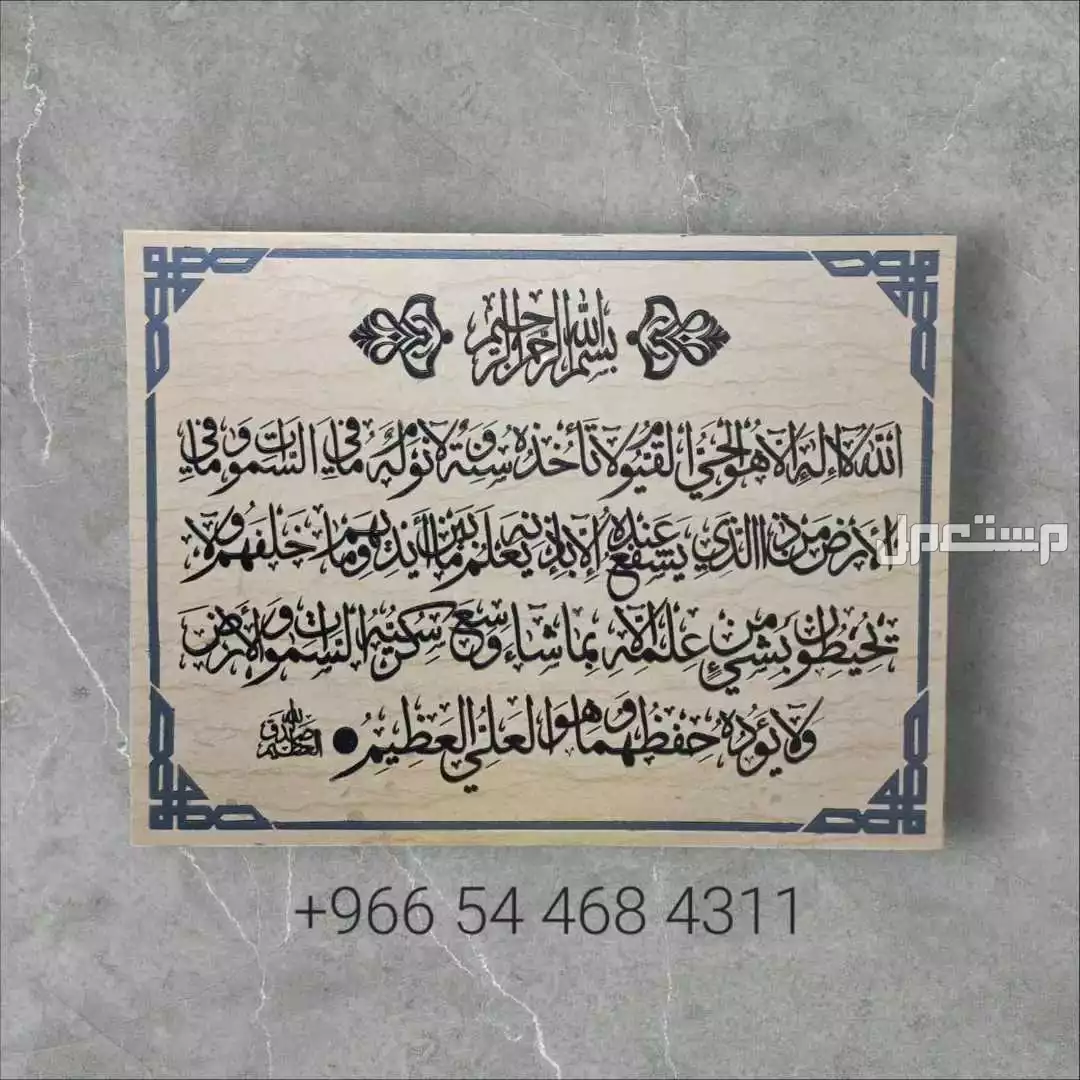 بسم الله الرحمن الرحيم
الله لا إله إلا هو الحي القيوم لا تأخذه سنة ولا نوم له ما في السموات وما في
الأرض من ذا الذي يشفع عنده إلا بإذنه يعلم ما بين أيديهم وما خلفهم ولا
يحيطون بشيء من علمه إلا بما شاء وسع كرسيه السموات والأرض
ولا يؤده حفظهما وهو العلي العظيم صدق الله العظيم
مستعمل
+966 54 468 4311